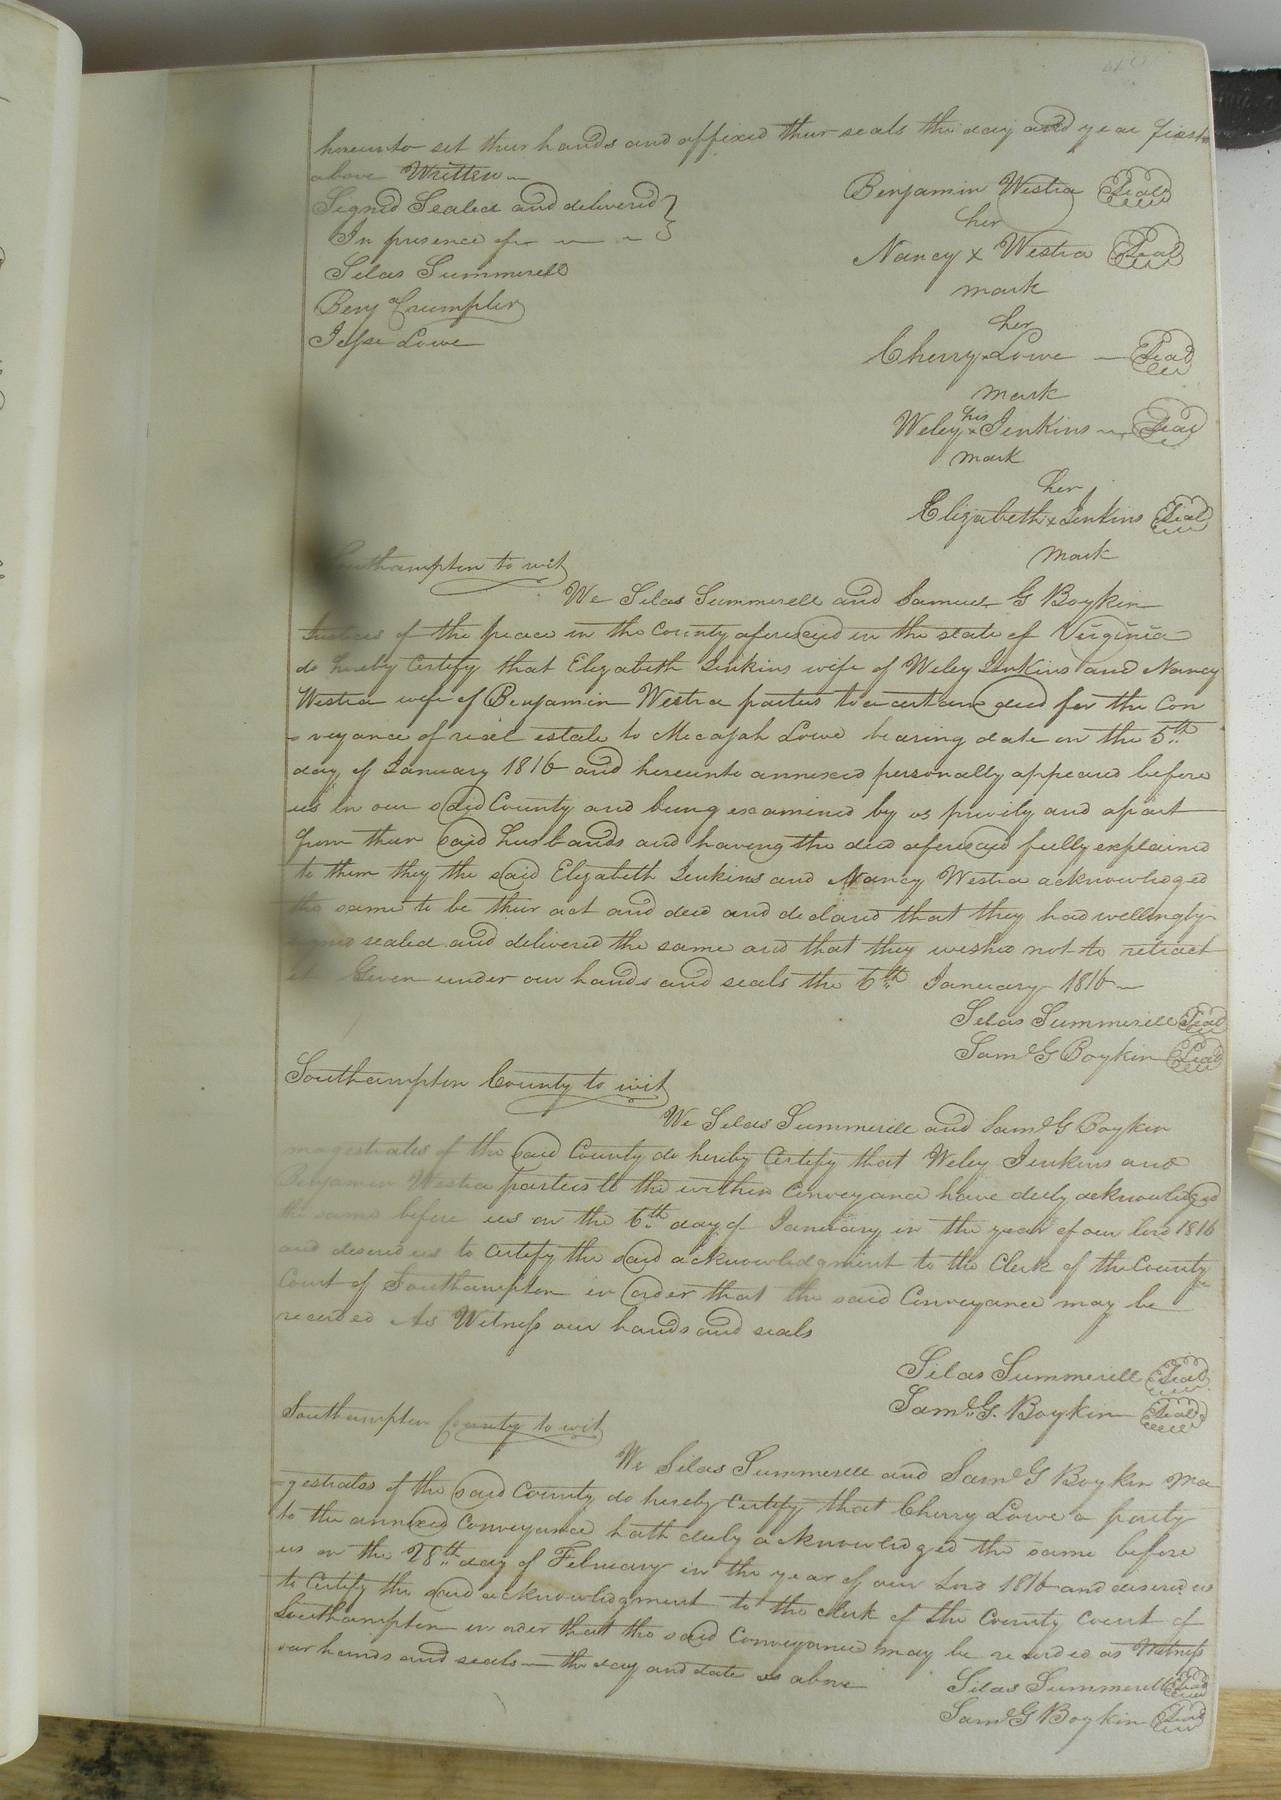 hereunto set their hands and affixed their seals the day and year first
above Written
Signed Sealed and delivered }
In presence of
Silas Summerell
Benj Crumpler
Jesse Lowe
Benjamin Westra Seal
her
Nancy x Westra Seal
mark
her
Cherry x Lowe Seal
mark
his
Weley x Jenkins Seal
mark
her
Elizabeth x Jenkins Seal
mark
Southampton to wit
We Silas Summerell and Samuel G Boykin
Justices of the peace in the County aforesaid in the state of Virginia
do hereby Certify that Elizabeth Jenkins wife of Weley Jenkins and Nancy
Westra wife of Benjamin Westra parties to a certain deed for the Con
-veyance of real estate to Mecajah Lowe bearing date on the 5th
day of January 1816 and hereunto annexed personally appeared before
us in our said County and being examined by us privily and apart
from their said husbands and having the deed aforesaid fully explained
to them they the said Elizabeth Jenkins and Nancy Westra acknowledged
the same to be their act and deed and declared that they had wellingly
signed sealed and delivered the same and that they wished not to retract
it Given under our hands and seals the 6th January 1816
Silas Summerell Seal
Saml G Boykin Seal
Southampton County to wit
We Silas Summerell and Saml G Boykin
magestrates of the said County do hereby Certify that Weley Jenkins and
Benjamin Westra parties to the within Conveyance have duly acknowledged
the same before us on the 6th day of January in the year of our lord 1816
and desired us to Certify the said acknowledgment to the Clerk of the County
Court of Southampton in order that the said Conveyance may be
recorded As Witness our hands and seals
Silas Summerell Seal
Saml G. Boykin Seal
Southampton County to wit
We Silas Summerell and Saml G Boykin Ma
-gestrates of the said County do hereby Certify that Cherry Lowe a party
to the annexed Conveyance hath duly acknowledged the same before
us on the 28th day of February in the year of our Lord 1816 and desired us
to Certify the said acknowledgment to the Clerk of the County Court of
Southampton in order that the said Conveyance may be recorded as Witness
our hands and seals the day and date as above
Silas Summerell Seal
Saml G Boykin Seal